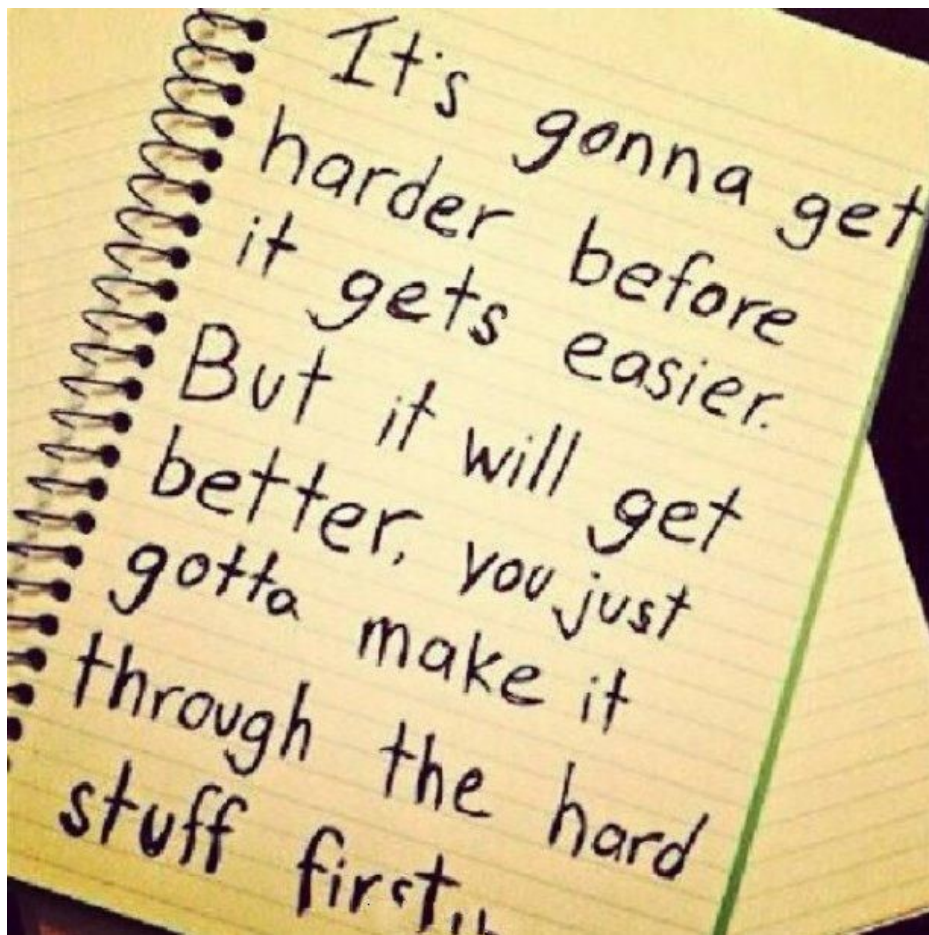 It's gonna get
harder before
it gets easier.
But it will get
better, you just
gotta make it
through the hard
stuff first..